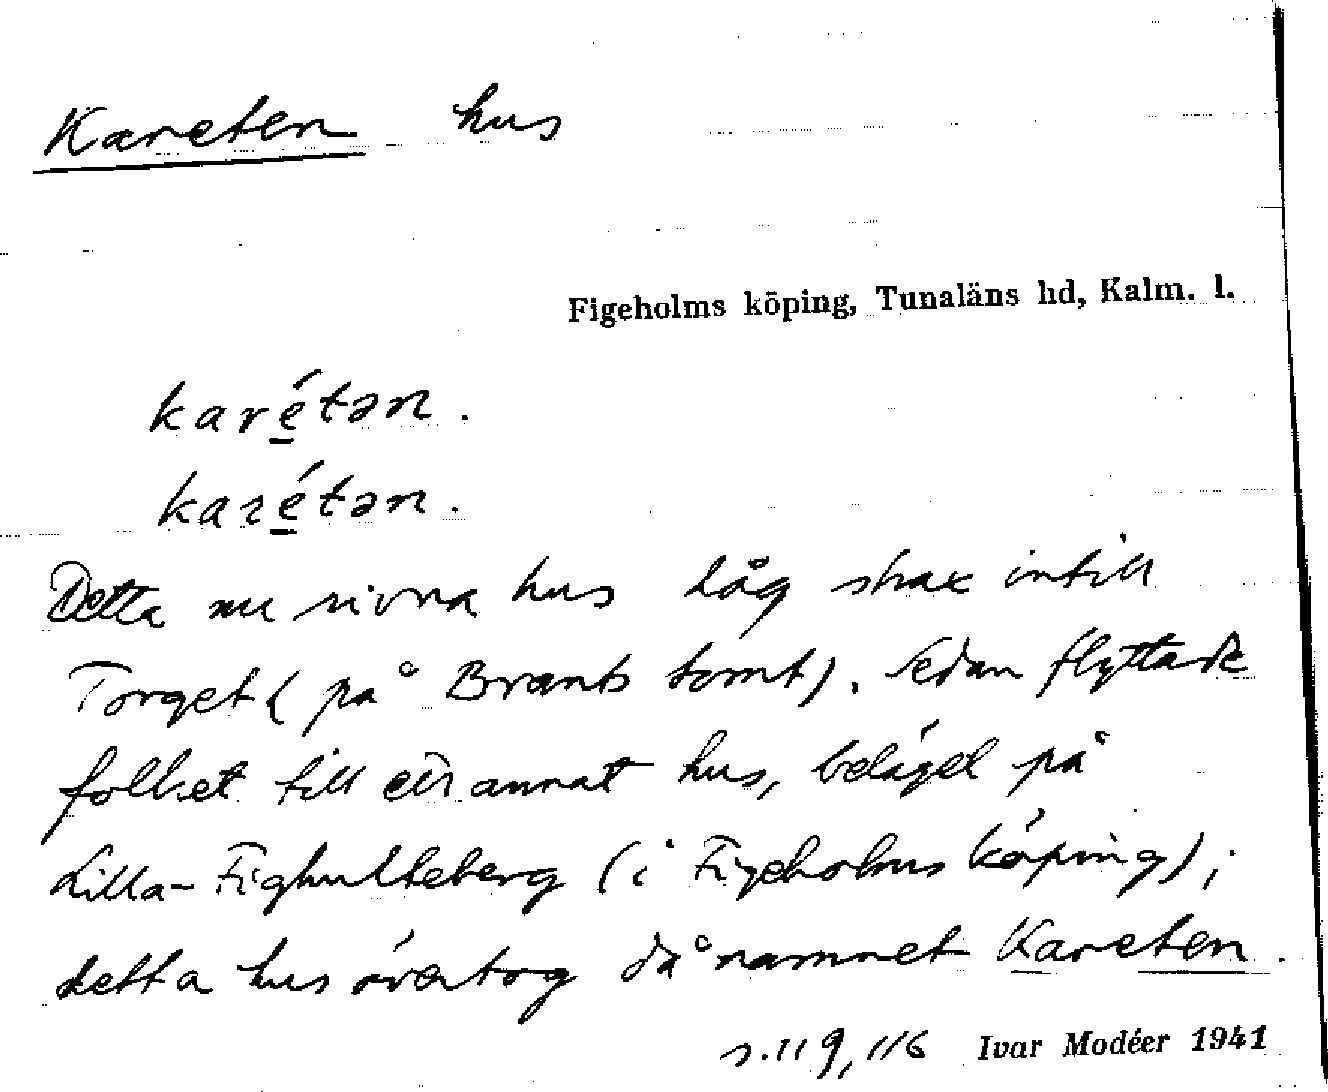 Kareten hus
Figeholms köping, Tunaläns hd, Kalm. l.
karé̱tən.
kaɿé̱tən.
Detta nu rivna hus låg strax intill
Torget (på Brants tomt). Sedan flyttade
folket till ett annat hus, beläget på
Lilla-Fighulteberg (i Figeholms köping);
detta hus övertog då namnet Kareten.
s. 119, 116 Ivar Modéer 1941